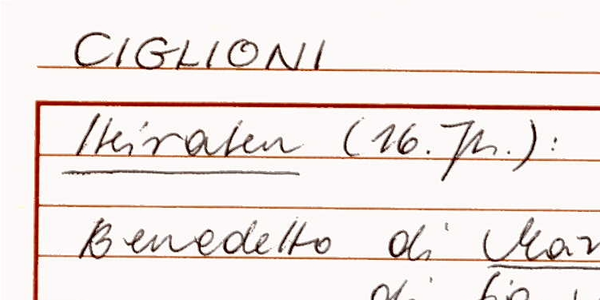 CIGLIONI
Heiraten (16. Jh.):
Benedetto di Mar
di Gio